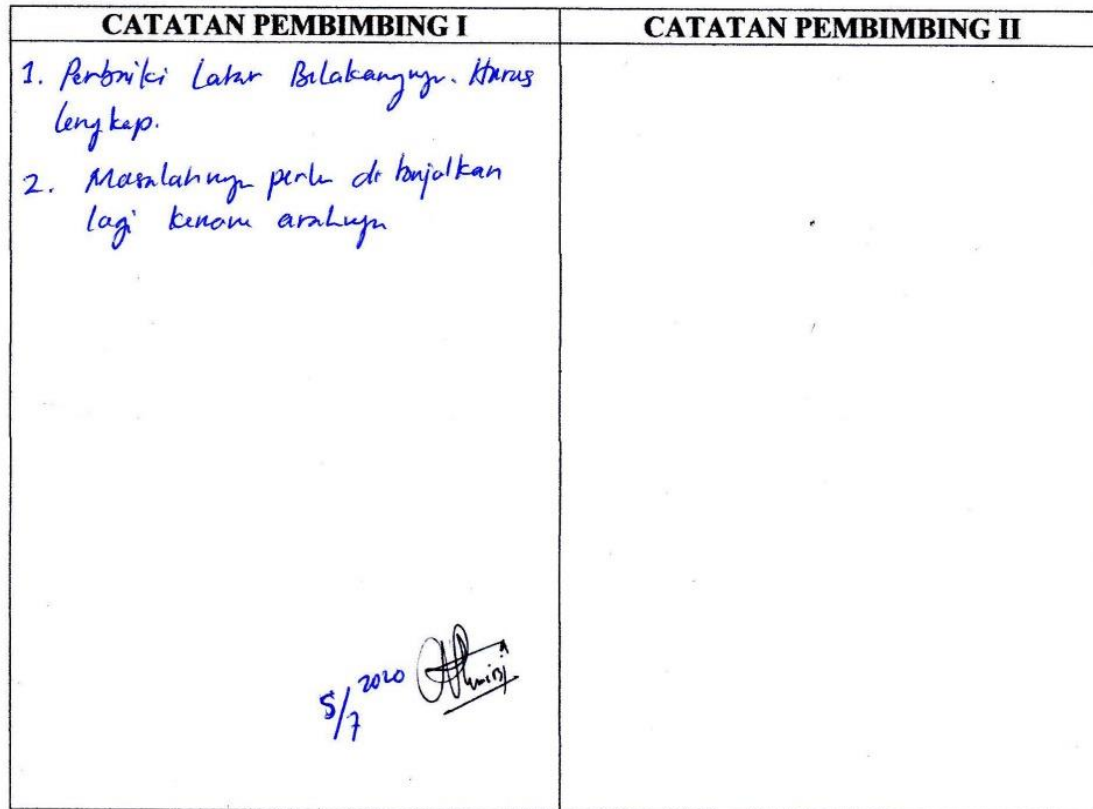 CATATAN PEMBIMBING I
CATATAN PEMBIMBING II
1. Perbaiki Latar Belakangnya. Harus
lengkap.
2. Masalahnya perlu di tonjolkan
lagi kemana arahnya
5/7 2020